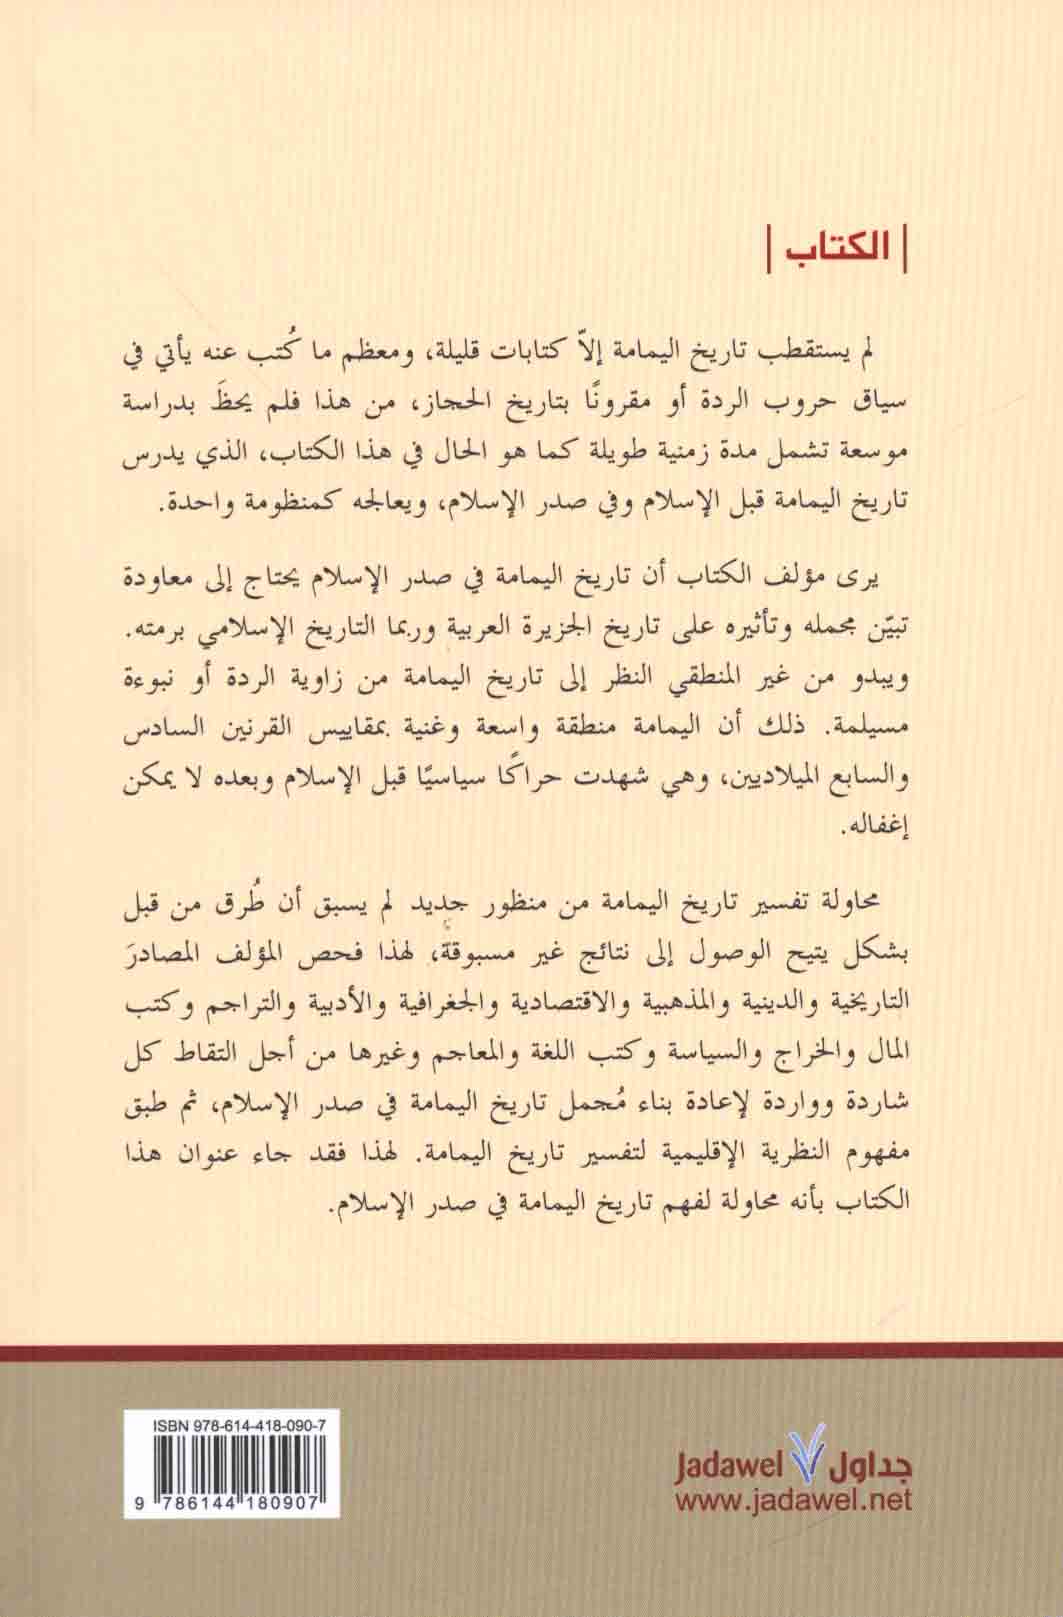 | الكتاب |
لم يستقطب تاريخ اليمامة إلاّ كتابات قليلة، ومعظم ما كُتب عنه يأتي في
سياق حروب الردة أو مقرونًا بتاريخ الحجاز، من هذا فلم يحظَ بدراسة
موسعة تشمل مدة زمنية طويلة كما هو الحال في هذا الكتاب، الذي يدرس
تاريخ اليمامة قبل الإسلام وفي صدر الإسلام، ويعالجه كمنظومة واحدة.
يرى مؤلف الكتاب أن تاريخ اليمامة في صدر الإسلام يحتاج إلى معاودة
تبيّن مجمله وتأثيره على تاريخ الجزيرة العربية وربما التاريخ الإسلامي برمته.
ويبدو من غير المنطقي النظر إلى تاريخ اليمامة من زاوية الردة أو نبوءة
مسيلمة. ذلك أن اليمامة منطقة واسعة وغنية بمقاييس القرنين السادس
والسابع الميلاديين، وهي شهدت حراكًا سياسيًا قبل الإسلام وبعده لا يمكن
إغفاله.
محاولة تفسير تاريخ اليمامة من منظور جديد لم يسبق أن طُرق من قبل
بشكل يتيح الوصول إلى نتائج غير مسبوقة، لهذا فحص المؤلف المصادرَ
التاريخية والدينية والمذهبية والاقتصادية والجغرافية والأدبية والتراجم وكتب
المال والخراج والسياسة وكتب اللغة والمعاجم وغيرها من أجل التقاط كل
شاردة وواردة لإعادة بناء مُجمل تاريخ اليمامة في صدر الإسلام، ثم طبق
مفهوم النظرية الإقليمية لتفسير تاريخ اليمامة. لهذا فقد جاء عنوان هذا
الكتاب بأنه محاولة لفهم تاريخ اليمامة في صدر الإسلام.
جداول Jadawel
www.jadawel.net
ISBN 978-614-418-090-7
9 786144 180907